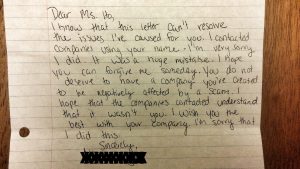 Dear Ms. Ho,
I know that this letter can't resolve
the issues I've caused for you. I contacted
companies using your name. I'm very sorry
I did. It was a huge mistake. I hope
you can forgive me someday. You do not
deserve to have a company you've created
to be negatively affected by a scam. I
hope that the companies contacted understand
that it wasn't you. I wish you the
best with your company. I'm sorry that
I did this.
Sincerely,